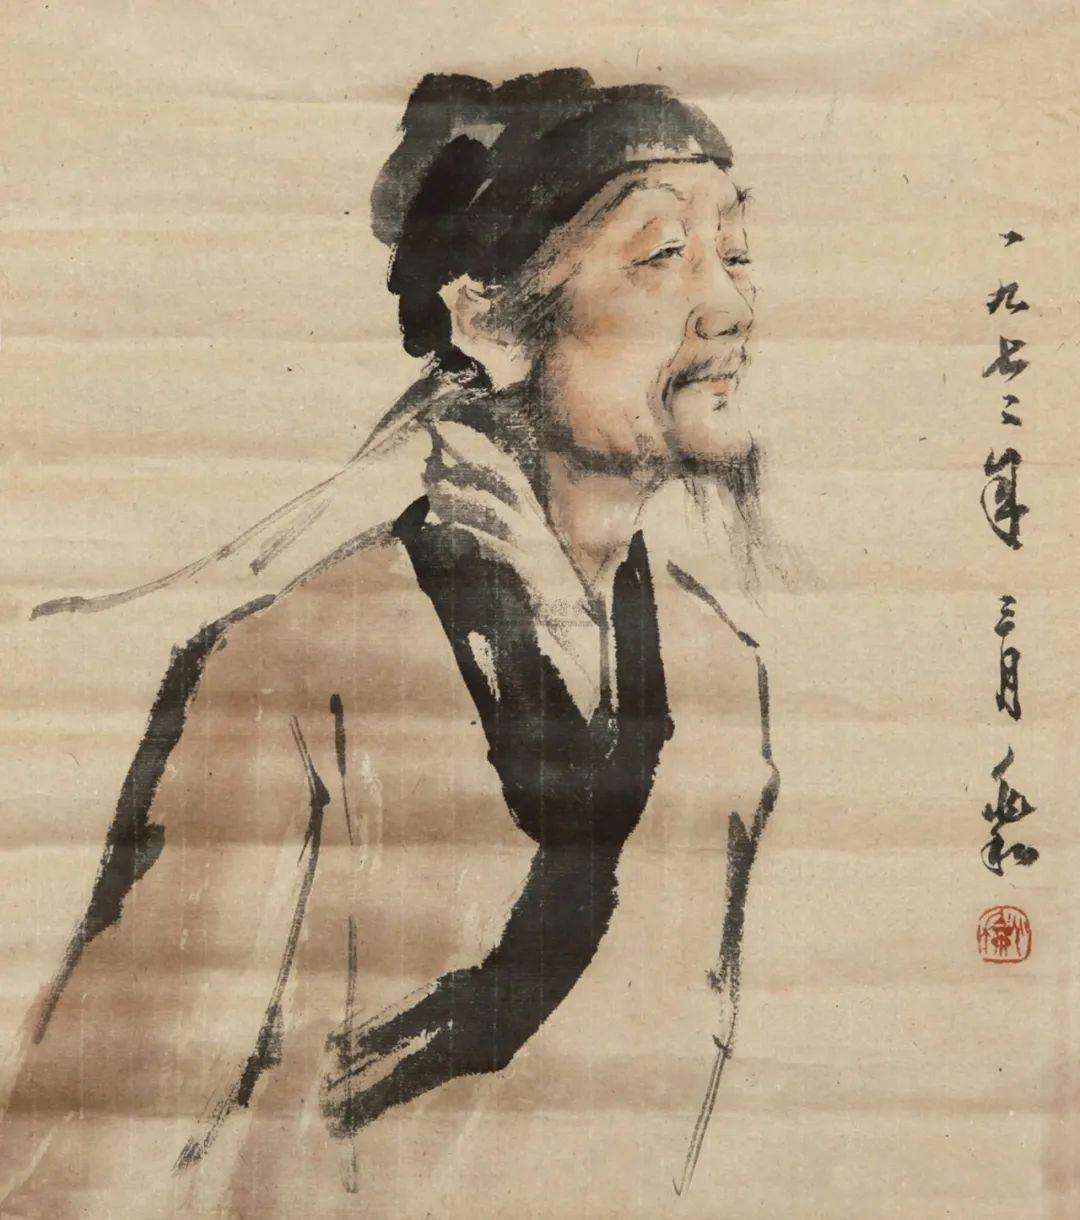 一九七二年 三月 兆和